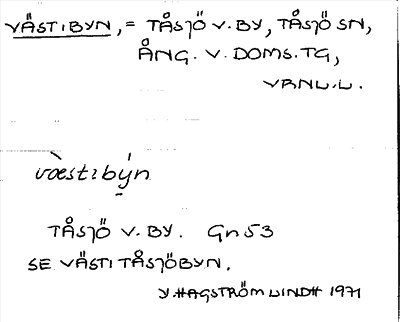 VÄSTIBYN, = TÅSJÖ V. BY, TÅSJÖ SN,
ÅNG. V. DOMS. TG,
VRNL.L.
væ̀stɩbýn
TÅSJÖ V. BY. Gn 53
SE VÄSTI TÅSJÖBYN.
Y. HAGSTRÖM LINDH 1971